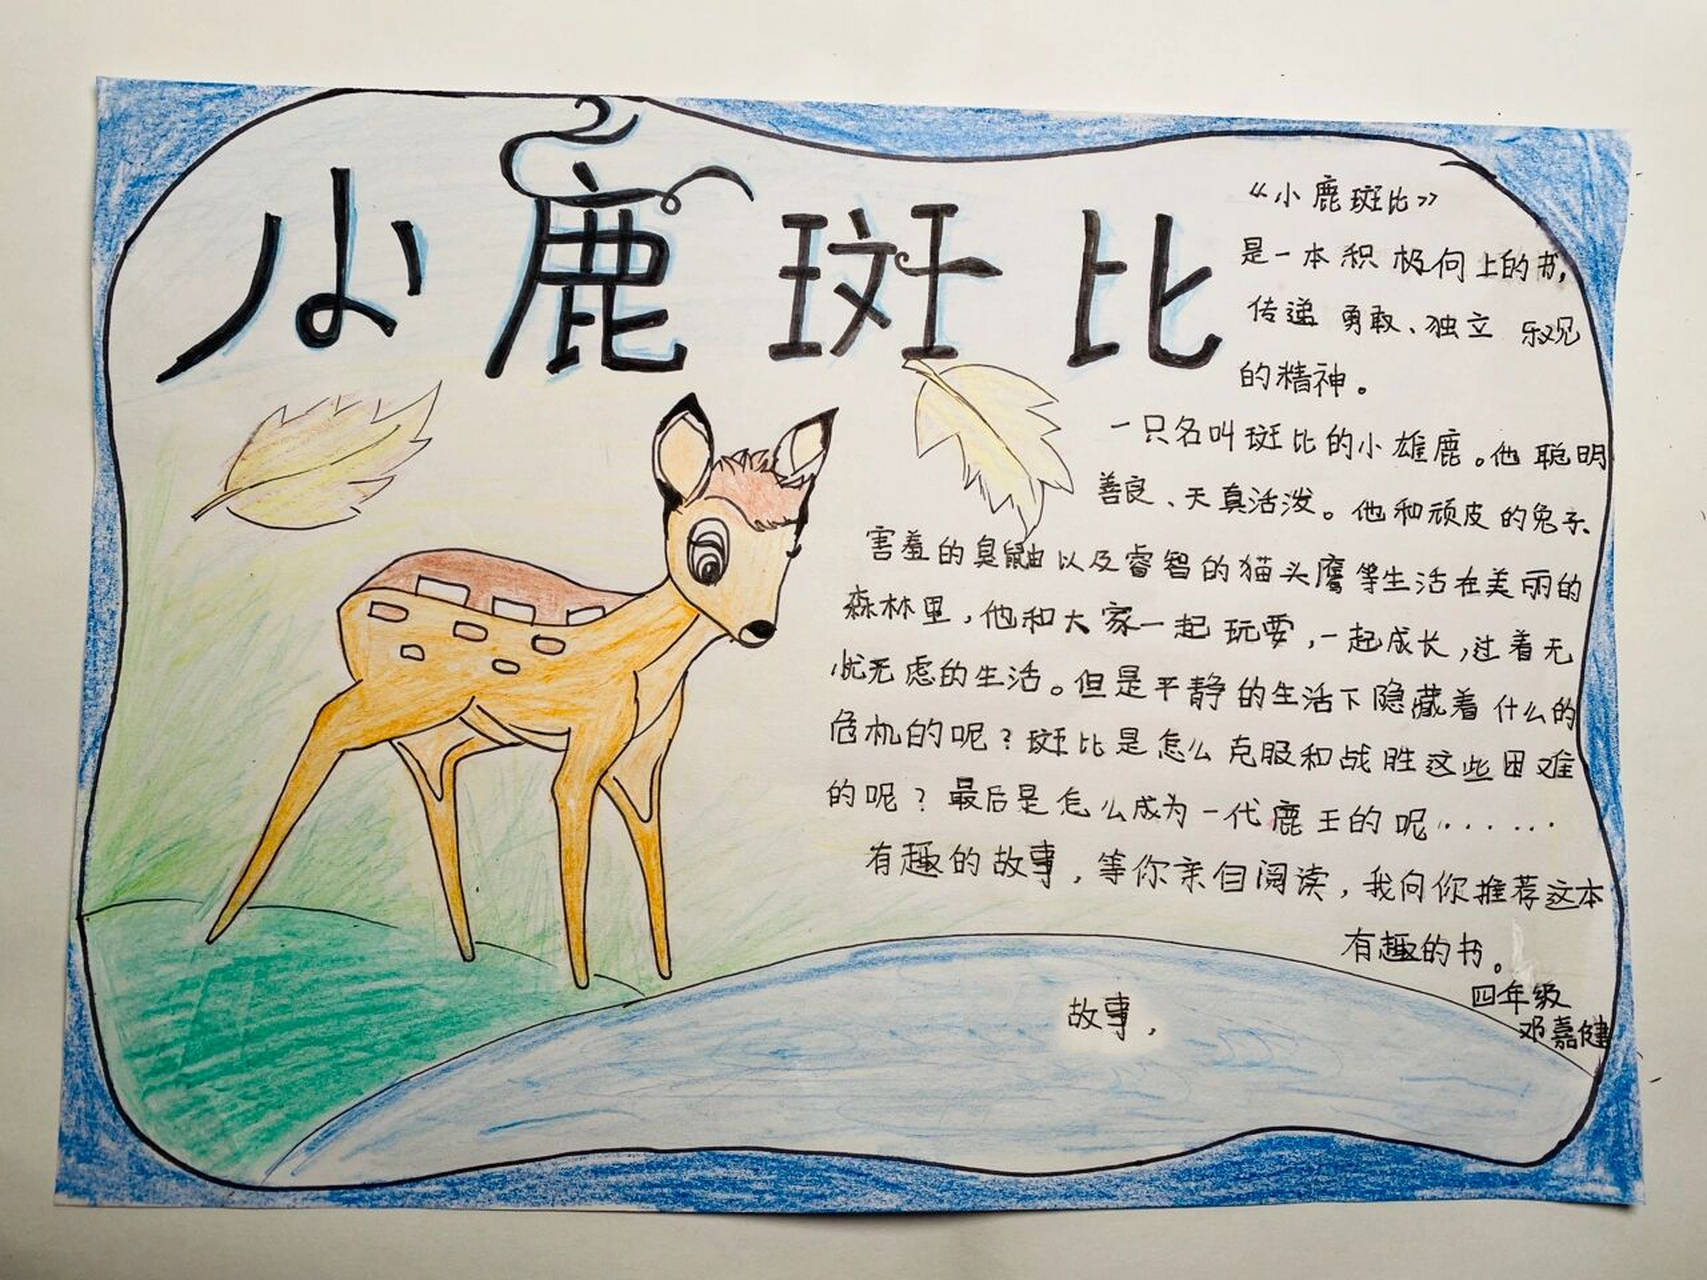 小鹿斑比
《小鹿斑比》
是一本积极向上的书,
传递勇敢、独立 乐观
的精神。
一只名叫斑比的小雄鹿。他聪明
善良、天真活泼。他和顽皮的兔子、
害羞的臭鼬以及睿智的猫头鹰等生活在美丽的
森林里,他和大家一起玩耍,一起成长,过着无
忧无虑的生活。但是平静的生活下隐藏着什么的
危机的呢?斑比是怎么克服和战胜这些困难
的呢?最后是怎么成为一代鹿王的呢······
有趣的故事,等你亲自阅读,我向你推荐这本
有趣的书。
四年级
邓嘉健
故事,